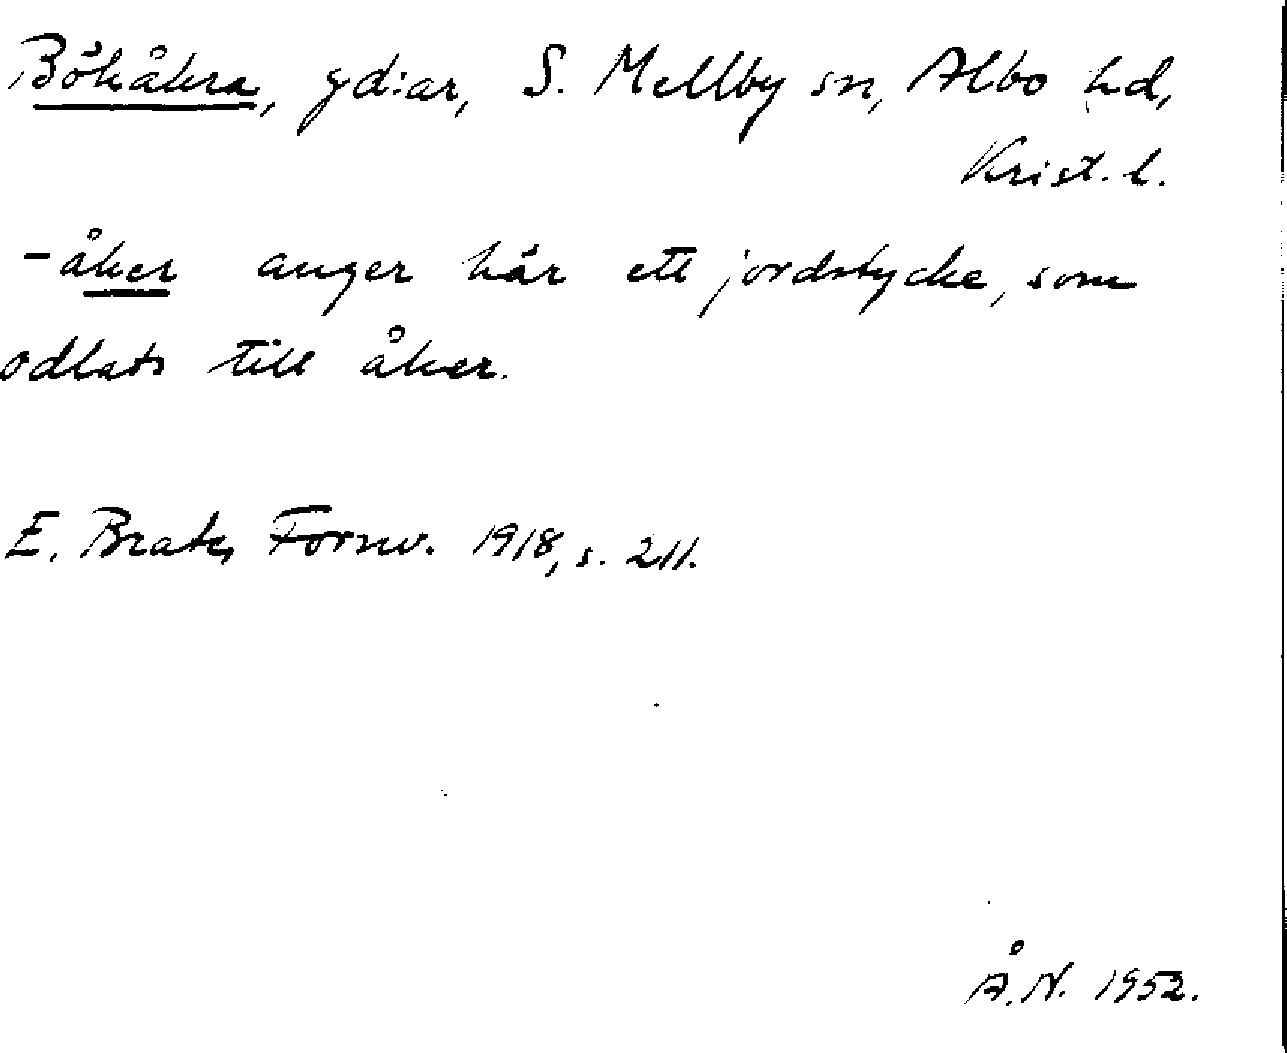 Bökåkra, gd:ar, S. Mellby sn, Albo hd,
Krist. l.
-åker anger här ett jordstycke, som
odlats till åker.
E. Brate, Fornv. 1918, s. 211.
Å.N. 1952.